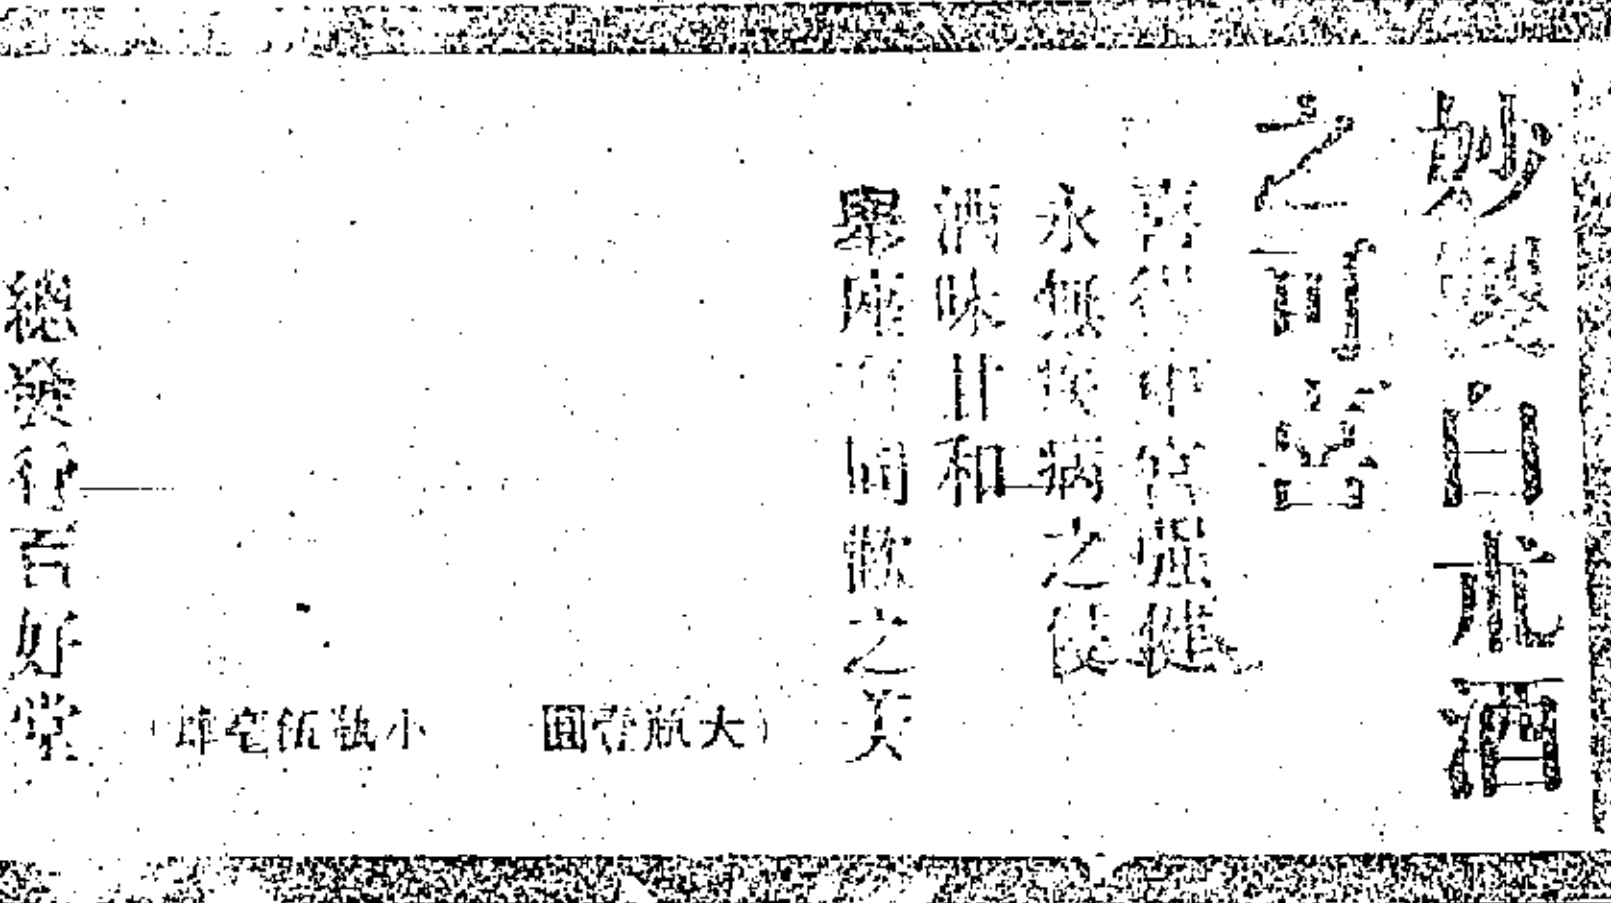 妙製白朮酒
之可
得中宮強健
永無疾病之侵
酒味甘和
舉座可同飲之美
(大瓶壹圓
小瓶伍毫
總發行百好堂